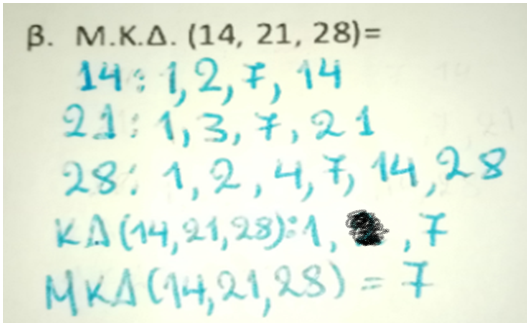 β. Μ.Κ.Δ. (14, 21, 28)=
14: 1, 2, 7, 14
21: 1, 3, 7, 21
28: 1, 2, 4, 7, 14, 28
ΚΔ(14,21,28): 1, , 7
ΜΚΔ(14,21,28) = 7